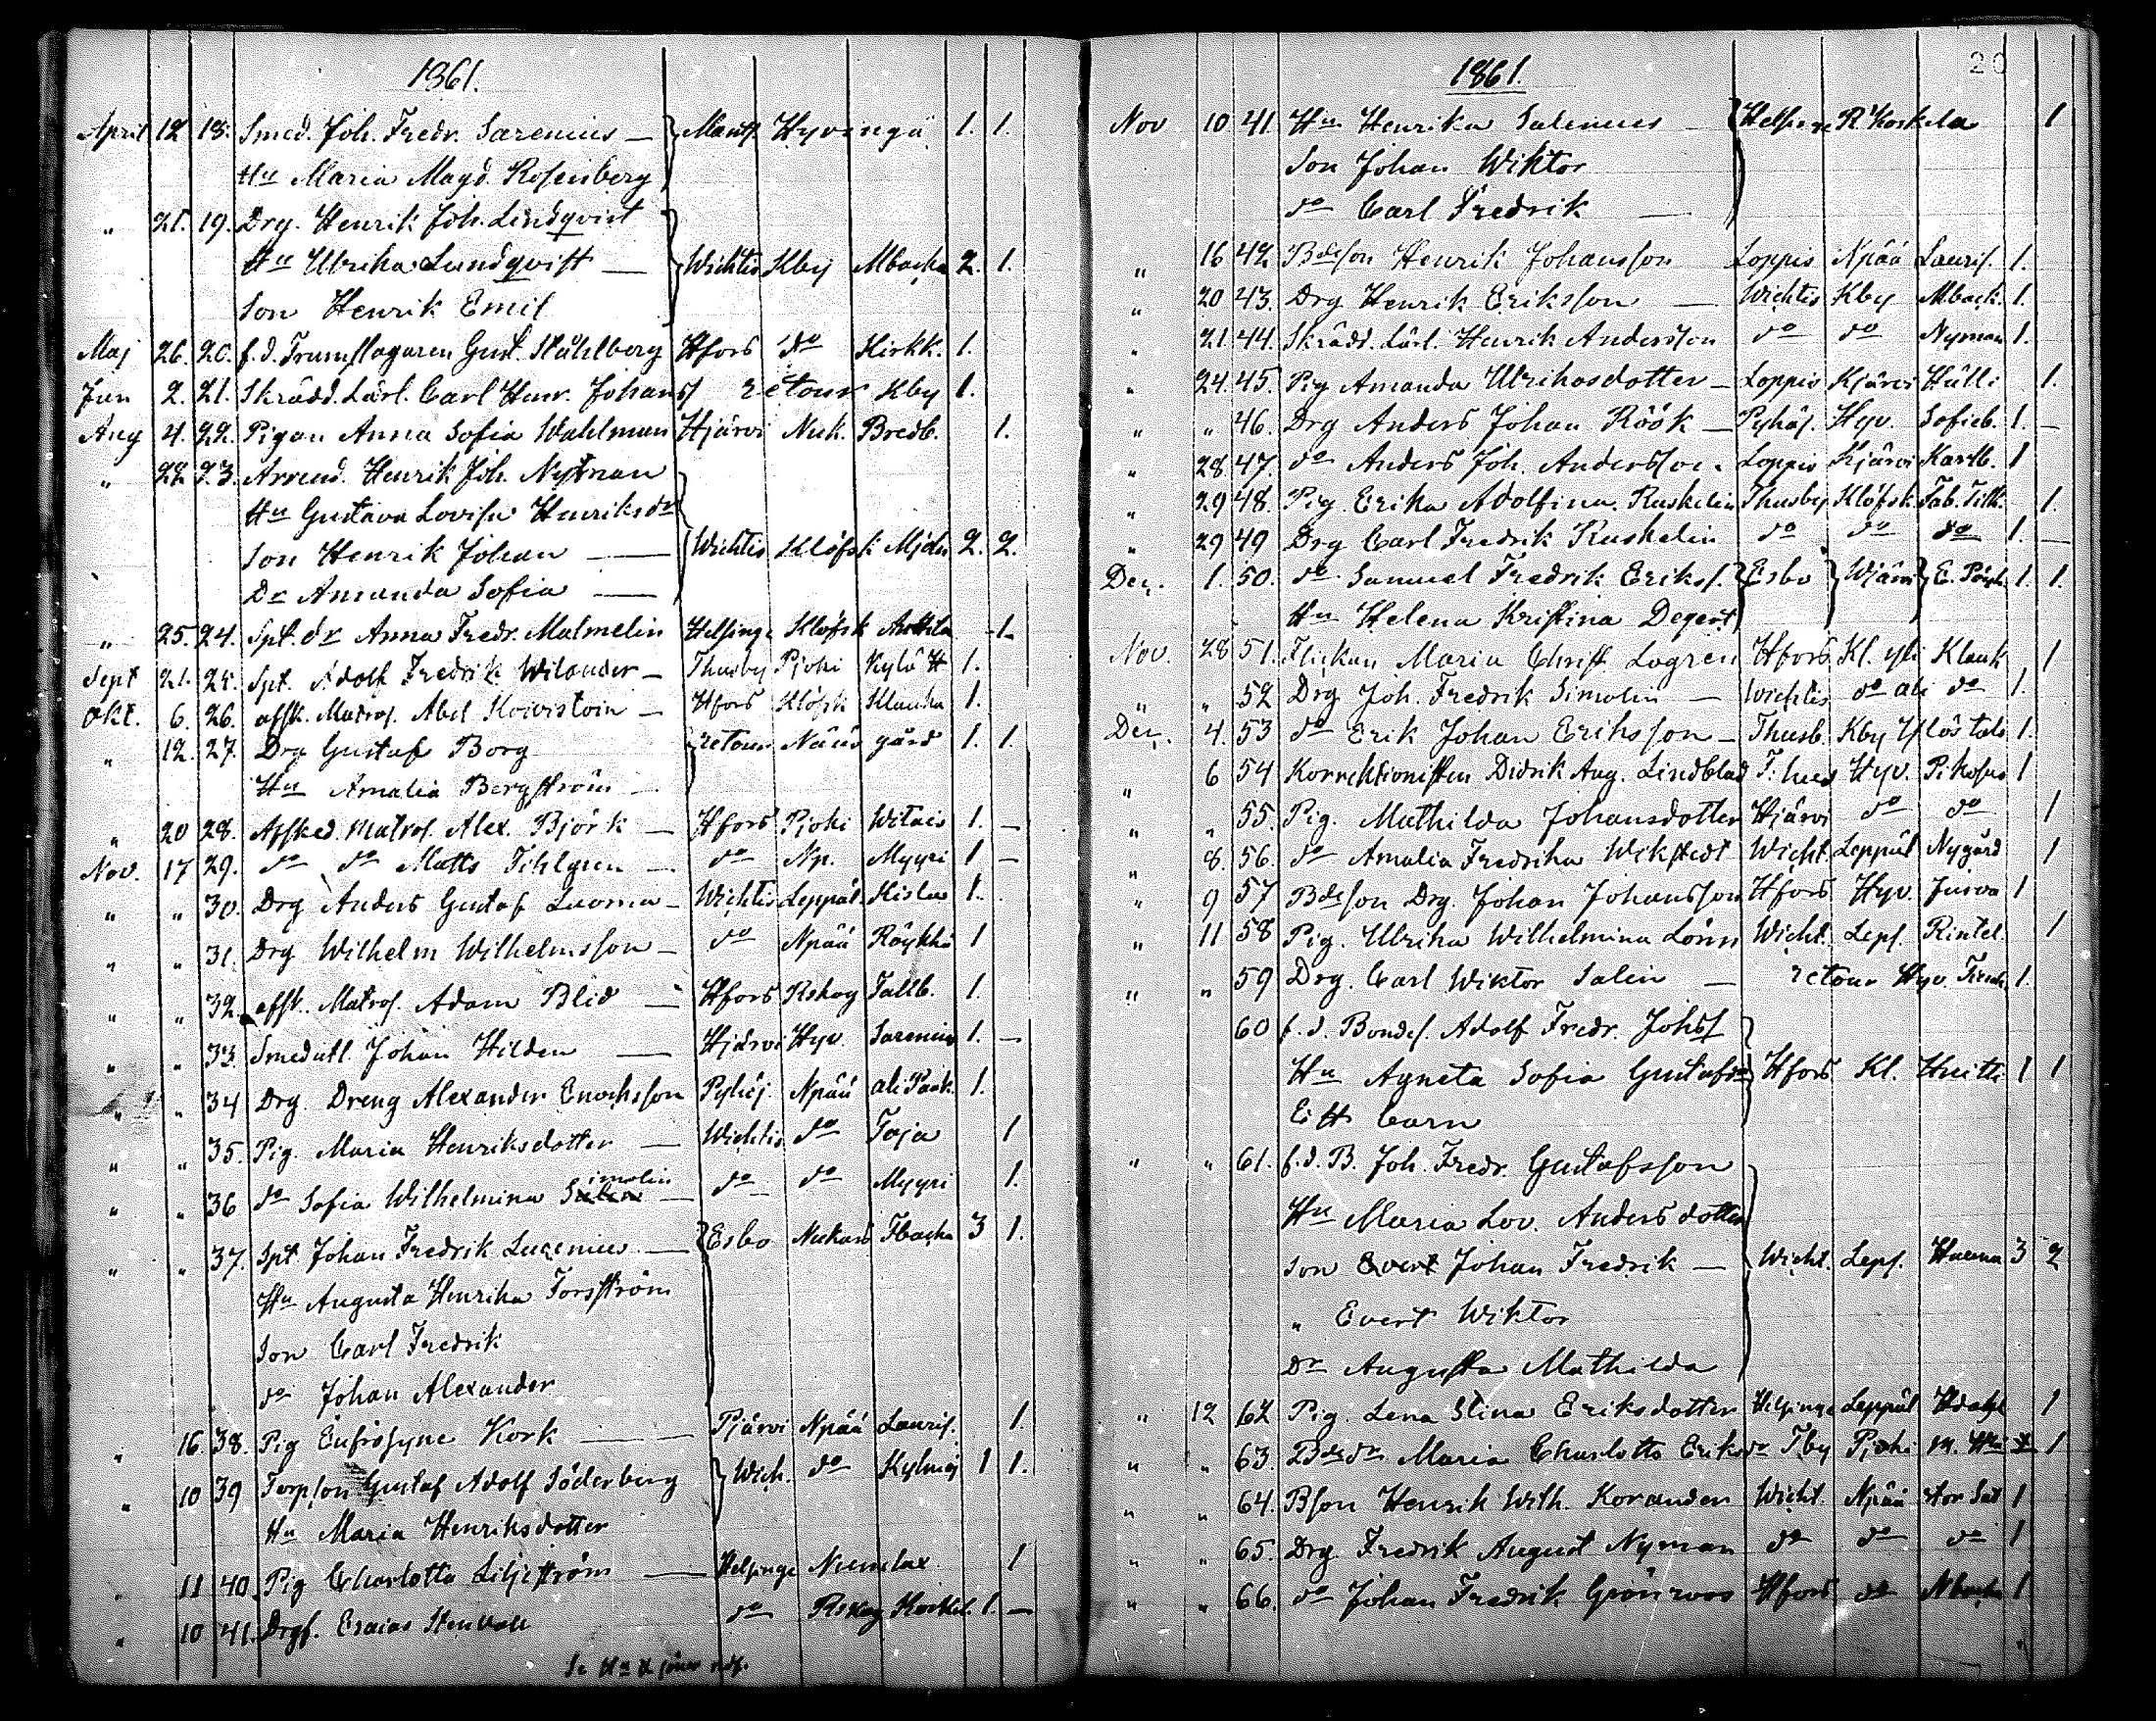 1861.
April 12 18. Smed. Joh. Fredr. Sarenius — Mants. Hyvinge 1. 1.
Hu Maria Magd. Rosenberg
" 21. 19. Drg. Henrik Joh. Lindqvist
Hu Ulrika Lundqvist — Wichtis Kby Mbacka 2. 1.
Son Henrik Emil
Maj 26. 20. f.d. Trumslagaren Gust. Ståhlberg Hfors do Kirkk. 1.
Jun 2. 21. Skrädd. Lärl. Carl Henr. Johans/ retour Kby 1.
Aug 4. 22. Pigan Anna Sofia Wahlman Hjärvi Nuk. Bredb. 1.
" 22 23. Arrend. Henrik Joh. Nyman
Hu Gustava Lovisa Henriksdr
Son Henrik Johan — Wichtis Klöfsk Mjdn 2. 2.
Dr Amanda Sofia —
" 25. 24. Spt. dr Anna Fredr. Malmelin Helsinge Klöfsk Anttila 1.
Sept 21. 25. Spt. Adolf Fredrik Wilander — Thusby Pjoki Kylä H 1.
Okt. 6. 26. afsk. Matros. Abel Koivistoin — Hfors Klöfsk Klauka 1.
" 12. 27. Drg Gustaf Borg retour Nääs gård 1. 1.
Hu Amalia Bergström —
" 20 28. Afsked. Matros. Alex. Björk — Hfors Pjoki Witais 1. —
Nov. 17 29. do do Matts Fihlgren — do Np. Myyri 1 —
" " 30. Drg Anders Gustaf Luoma — Wichtis Leppäl Kislas 1.
" " 31. Drg Wilhelm Wilhelmsson — do Npää Röykkä 1
" " 32. afsk. Matros. Adam Blid — Hfors Rskog Tallb. 1.
" " 33. Smedutl. Johan Hilden — Hjärvi Hyv. Sarenius 1. —
" " 34 Drg. Dreng Alexander Enochsson Pyhäj. Npää ali Paak. 1.
" " 35. Pig. Maria Henriksdotter — Wichtis do Toja 1
" " 36 do Sofia Wilhelmina Simolin — do do Myyri 1.
" " 37. Spt. Johan Fredrik Lucenius — Esbo Nukars Tbacka 3 1.
Hu Augusta Henrika Forsström
Son Carl Fredrik
do Johan Alexander
" 16 38. Pig Eufrosyne Kork — Pjärvi Npää Lauris. 1.
" 10 39 Torpson Gustaf Adolf Söderberg Wich. do Kylmäj 1 1.
Hu Maria Henriksdotter
" 11 40 Pig Charlotta Liljeström — Helsinge Numlax 1
" 10 41. Drgs. Esaias Stenvall do Rskog Koskel. 1. —
Se Hu &
20
1861.
Nov 10 41. Hu Henrika Salenius — Helsinge R. Koskela 1
Son Johan Wiktor
do Carl Fredrik —
" 16 42. Bdeson Henrik Johansson Loppis Npää Lauris. 1.
" 20 43. Drg Henrik Eriksson — Wichtis Kby Mback. 1.
" 21. 44. Skrädd. Lärl. Henrik Andersson do do Nyman 1.
" 24. 45. Pig Amanda Ulrikasdotter — Loppis Kjärvi Hälli 1.
" " 46. Drg Anders Johan Röök — Pyhäj. Hyv. Sofieb. 1. —
" 28 47. do Anders Joh. Andersson. Loppis Kjärvi Karlb. 1
" 29 48. Pig. Erika Adolfina Ruskelin Thusby Klöfsk. Fab. Tilk. 1.
" 29 49 Drg Carl Fredrik Ruskelin do do do 1. —
Dec. 1. 50. do Samuel Fredrik Eriks/. Esbo Wjärvi E. Pöyh. 1. 1.
Hu Helena Kristina Degert
Nov. 28 51. Flickan Maria Christ. Lagren Hfors Kl. yli Klauk 1
" " 52 Drg Joh. Fredrik Simolin — Wichtis do ali do 1.
Dec. 4. 53 do Erik Johan Eriksson — Thusb. Kby Ylöstalo 1.
" 6 54 Korrektionisten Didrik Aug. Lindblad T. hus Hyv. 1
" " 55. Pig. Mathilda Johansdotter Hjärvi do do 1
" 8. 56. do Amalia Fredrika Wikstedt Wicht. Leppäl Nygård 1
" 9 57 Bdeson Drg. Johan Johansson Hfors Hyv. Jurva 1
" 11 58 Pig. Ulrika Wilhelmina Lönn Wicht. Leps. Rintel. 1
" " 59 Drg. Carl Wiktor Salin — retour Hyv. 1.
60 f.d. Bondes. Adolf Fredr. Johss/
Hu Agneta Sofia Gustafsdr Hfors Kl. Huitti 1 1
Ett barn
" " 61. f.d. B. Joh. Fredr. Gustafsson
Hu Maria Lov. Andersdotter
Son Evert Johan Fredrik — Wicht. Leps. Huema 3 2
" Evert Wiktor
Dr Augusta Mathilda
" 12 62 Pig. Lena Stina Eriksdotter Helsinge Leppäl 1
" " 63. Bdedr Maria Charlotta Eriksdr Tby Pjoki 1
" " 64. Bson Henrik Wilh. Korander Wicht. Npää 1
" " 65. Drg. Fredrik August Nyman do do do 1
" " 66. do Johan Fredrik Grönroos Hfors do Nbacka 1